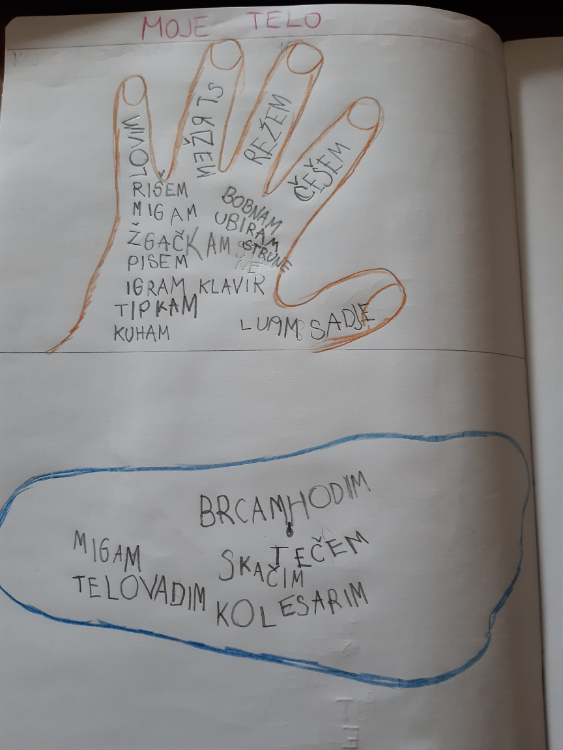 MOJE TELO
LOVIM
STRŽEM
REŽEM
ČEŠEM
RIŠEM
MIGAM
ŽGAČKAM
PISEM
IGRAM KLAVIR
TIPKAM
KUHAM
BOBNAM
UBIRAM
STRUNE
LUPAM SADJE
BRCAM HODIM
MIGAM
TEČEM
SKAČIM
TELOVADIM
KOLESARIM